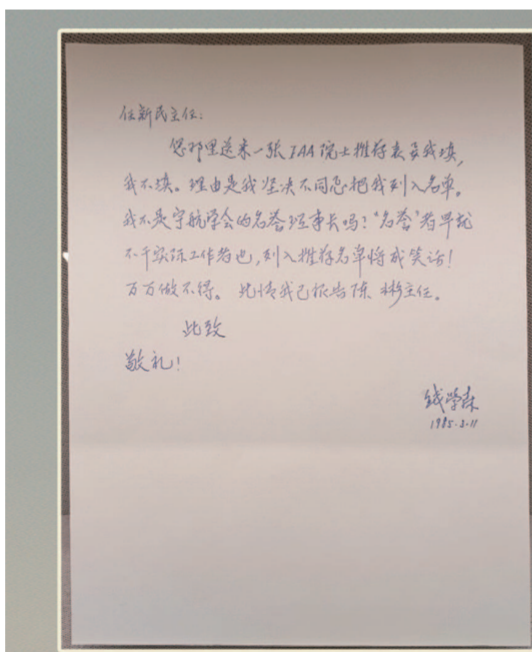 任新民主任：
您那里送来一张IAA院士推荐表要我填，
我不填。理由是我坚决不同意把我列入名单。
我不是宇航学会的名誉理事长吗？“名誉”者早就
不干实际工作者也，列入推荐名单将成笑话！
万万做不得。此情我已报告陈彬主任。
此致
敬礼！
钱学森
1985.2.11